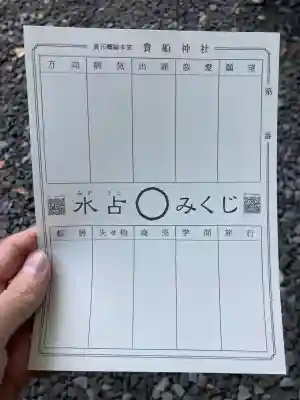 貴布禰総本宮 貴船神社
方向 病気 出産 恋愛 願望
第 番
みず うら
水占 みくじ
転居 失せ物 商売 学問 旅行